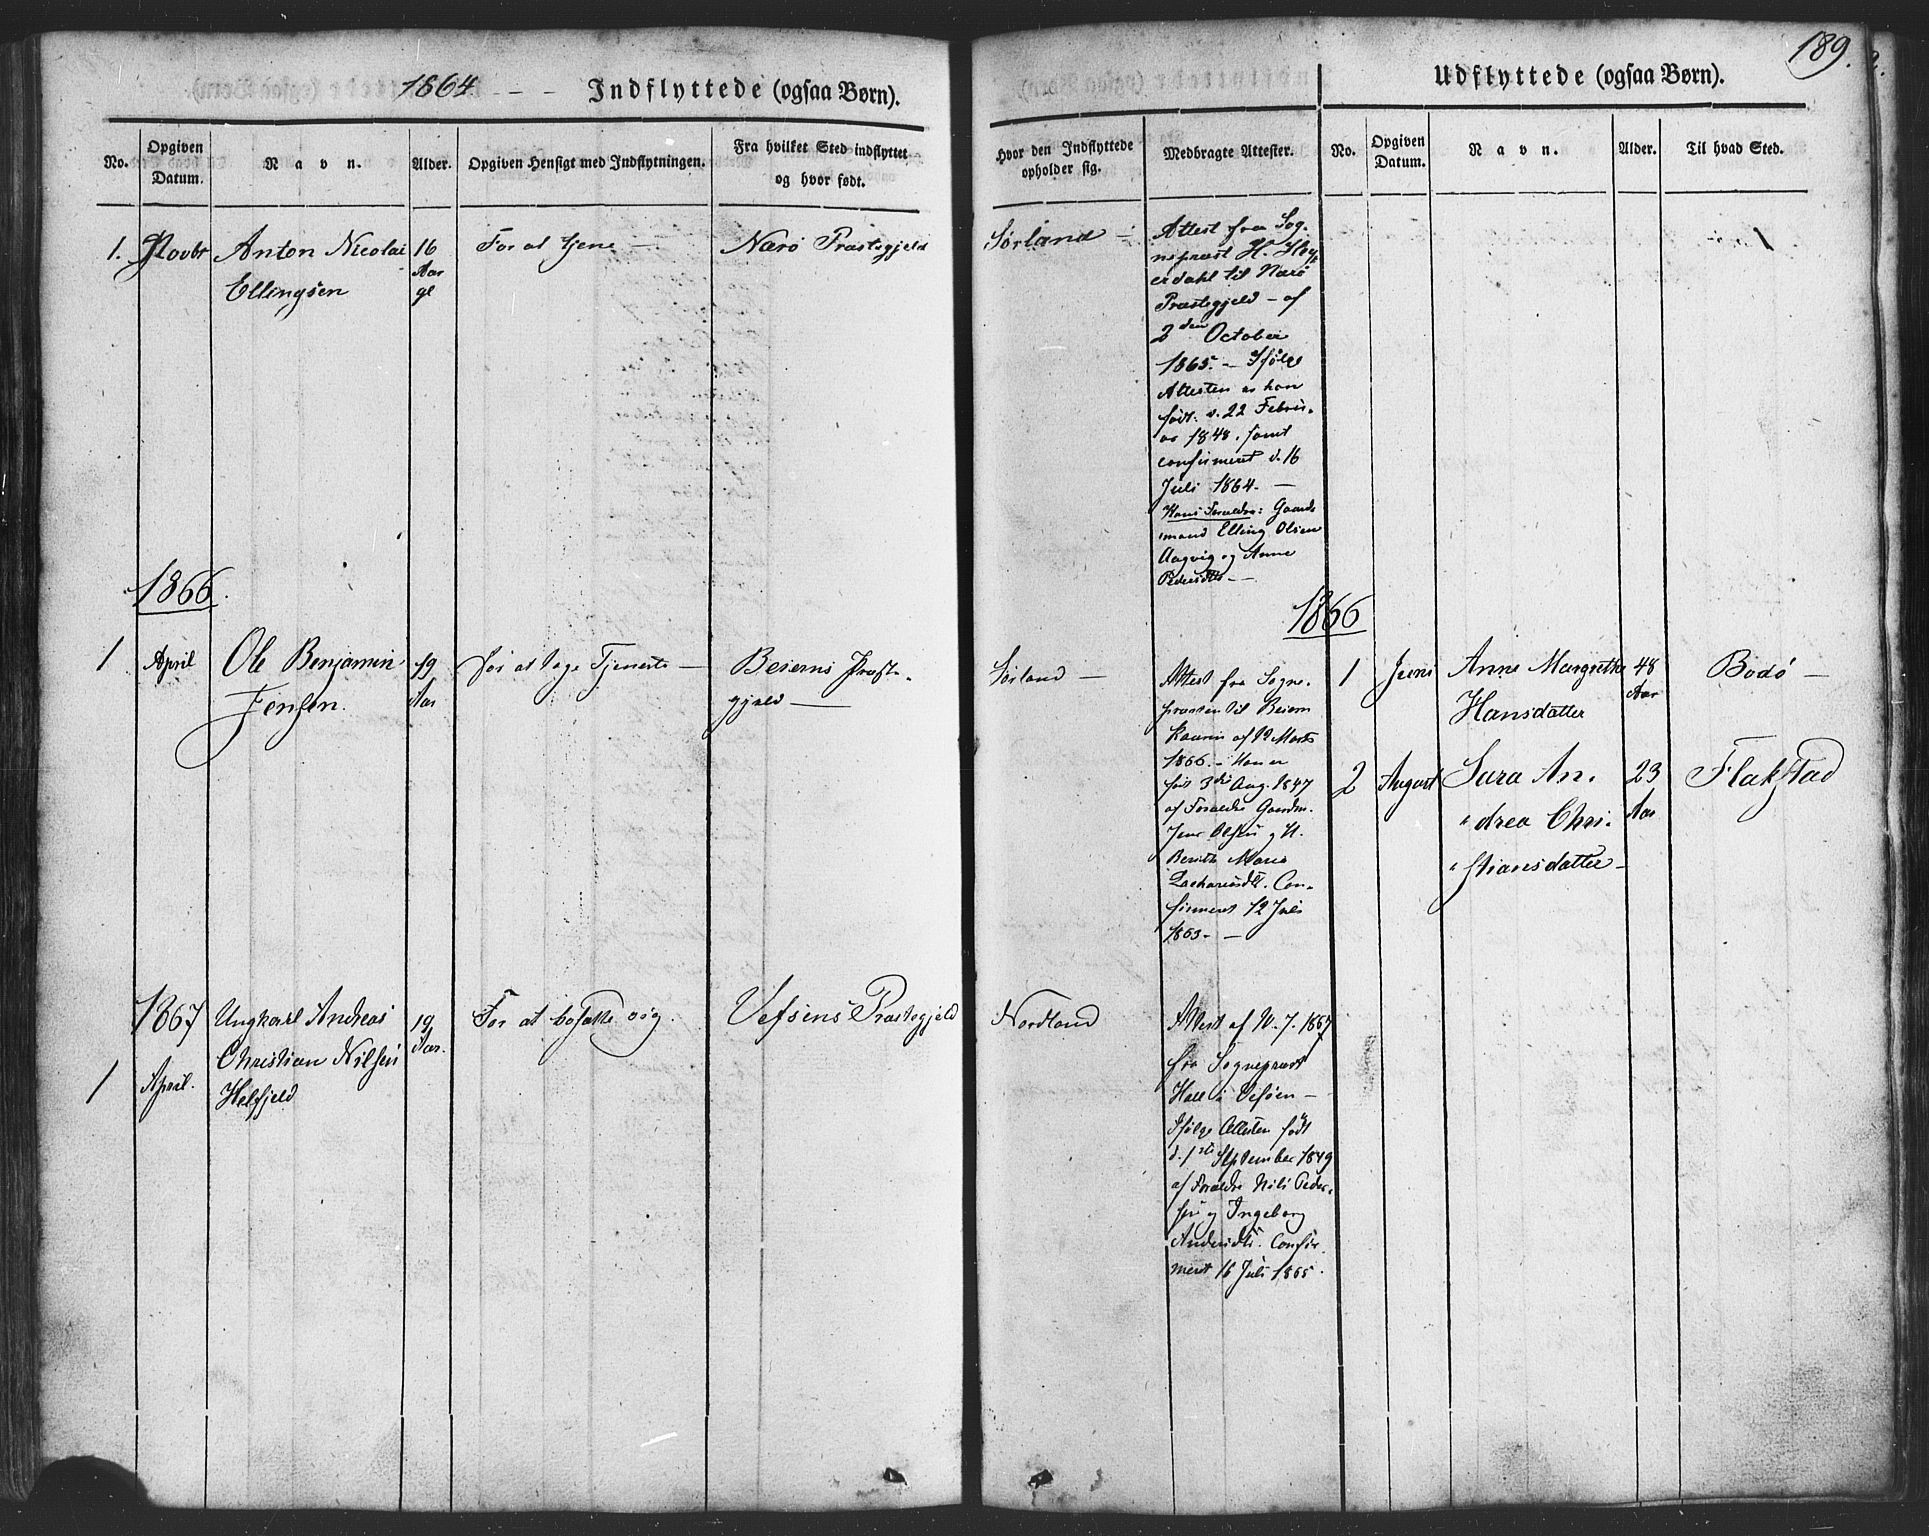 1864 - - - Indflyttede (ogsaa Børn).
No.
Opgiven
Datum.
Navn.
Alder.
Opgiven Hensigt med Indflytningen.
Fra hvilket Sted indflyttet
og hvor født.
1. Novbr
Anton Nicolai
Ellingsen
16
Aar
gl
For at tjene —
Nærø Præstegjeld
1866.
1
April
Ole Benjamin
Jensen.
19
Aar
for at tage Tjeneste —
Beierns Præste-
gjeld —
1867
1
April.
Ungkarl Andreas
Christian Nilsen
Helfjeld
19
Aar.
For at bosætte sig.
Vefsens Præstegjeld
189.
Udflyttede (ogsaa Børn).
Hvor den Indflyttede
opholder sig.
Medbragte Attester.
No.
Opgiven
Datum.
Navn.
Alder.
Til hvad Sted.
Sørland —
Attest fra Sog-
nepræst H.
til Nærø
Præstegjeld - af
2den October
1865. - Ifølge
Attesten er han
født d. 22 Febru-
ar 1848, samt
confirmeret d. 16
Juli 1864. —
Hans Forældre: Gaard-
mand Elling Olsen
Aagvig og Anne
Pedersdtr —
Sørland —
Attest fra Sogne-
præsten til Beiern
af 12 Marts
1866. - Han er
født 3die Aug. 1847
af Forældre Gaardm.
Jens Olsen og H.
Berith Maria
Zachariasdtr. Con-
firmeret 12 Juli
1863. —
Nordland
Attest af 10. 7. 1867
fra Sognepræst
Hall i Vefsen —
Ifølge Attesten født
d. 1ste September 1849
af Forældre Nils Peder-
sen og Ingeborg
Andersdtr. Confir-
meret 16 Juli 1865.
1866
1
Juni
Anne Margrethe
Hansdatter
48
Aar
Bodø —
2
August
Sara An-
drea Chri-
stiansdatter —
23
Aar
Flakstad